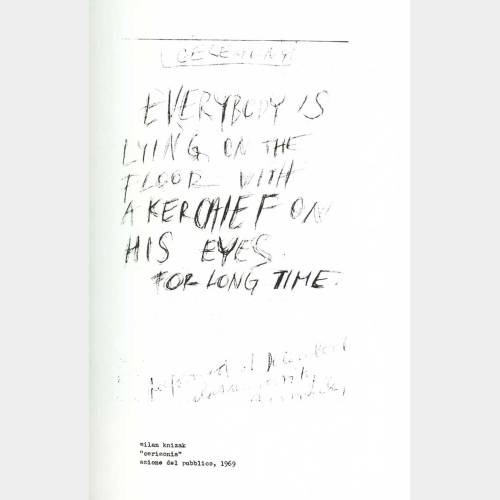 CEREMONY
EVERYBODY IS
LYING ON THE
FLOOR WITH
A KERCHIEF ON
HIS EYES.
FOR LONG TIME.
performed at
milan knizak
"cerimonia"
azione del pubblico, 1969